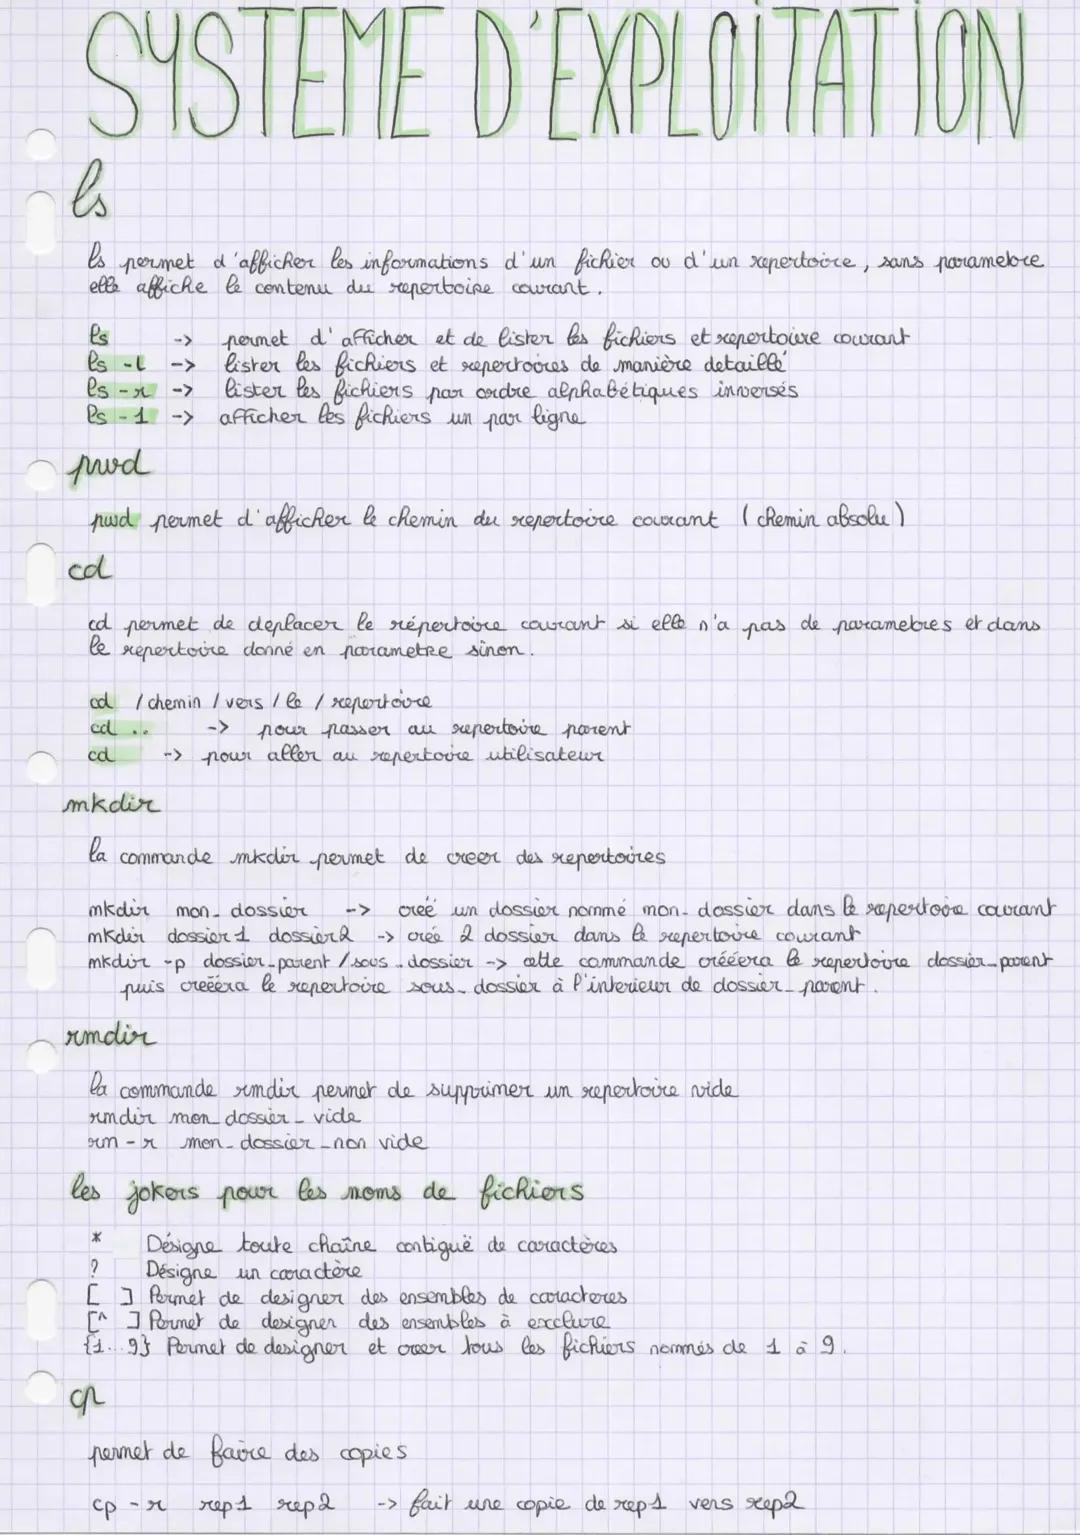 SYSTEME D'EXPLOITATION
ls
ls permet d'afficher les informations d'un fichier ou d'un repertoire, sans parametre
elle affiche le contenu du repertoire courant.
ls -> permet d'afficher et de lister les fichiers et repertoire courant
ls -l -> lister les fichiers et repertoires de manière detaillé
ls -r -> lister les fichiers par ordre alphabétiques inversés
ls -1 -> afficher les fichiers un par ligne
pwd
pwd permet d'afficher le chemin du repertoire courant (chemin absolu)
cd
cd permet de deplacer le répertoire courant si elle n'a pas de parametres et dans
le repertoire donné en parametre sinon.
cd /chemin/vers/le/repertoire
cd .. -> pour passer au repertoire parent
cd -> pour aller au repertoire utilisateur
mkdir
la commande mkdir permet de creer des repertoires
mkdir mon_dossier -> creé un dossier nommé mon_dossier dans le repertoire courant
mkdir dossier1 dossier2 -> crée 2 dossier dans le repertoire courant
mkdir -p dossier_parent/sous_dossier -> cette commande crééera le repertoire dossier_parent
puis crééera le repertoire sous_dossier à l'interieur de dossier_parent.
rmdir
la commande rmdir permet de supprimer un repertoire vide
rmdir mon_dossier_vide
rm -r mon_dossier_non vide
les jokers pour les noms de fichiers
* Désigne toute chaîne contiguë de caractères
? Désigne un caractère
[ ] Permet de designer des ensembles de caracteres
[^ ] Permet de designer des ensembles à exclure
{1...9} Permet de designer et creer tous les fichiers nommés de 1 à 9.
cp
permet de faire des copies
cp -r rep1 rep2 -> fait une copie de rep1 vers rep2